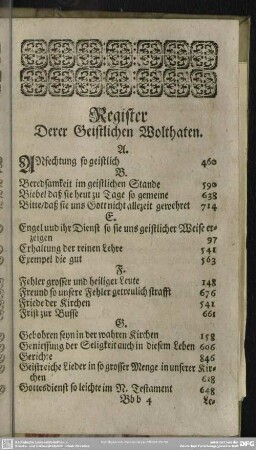 Register
Derer Geistlichen Wolthaten.
A.
ANfechtung so geistlich 460
B.
Beredsamkeit im geistlichen Stande 590
Biebel daß sie heut zu Tage so gemeine 638
Bitte/ daß sie uns Gott nicht allezeit gewehret 714
E.
Engel und ihr Dienst so sie uns geistlicher Weise er-
zeigen 97
Erhaltung der reinen Lehre 541
Exempel die gut 563
F.
Fehler grosser und heiliger Leute 148
Freund so unsere Fehler getreulich strafft 676
Friede der Kirchen 541
Frist zur Busse 661
G.
Gebohren seyn in der wahren Kirchen 158
Geniessung der Seligkeit auch in diesem Leben 606
Gerichte 846
Geistreiche Lieder in so grosser Menge in unserer Kir-
chen 618
Gottesdienst so leichte im N. Testament 648
Bbb 4 Le-